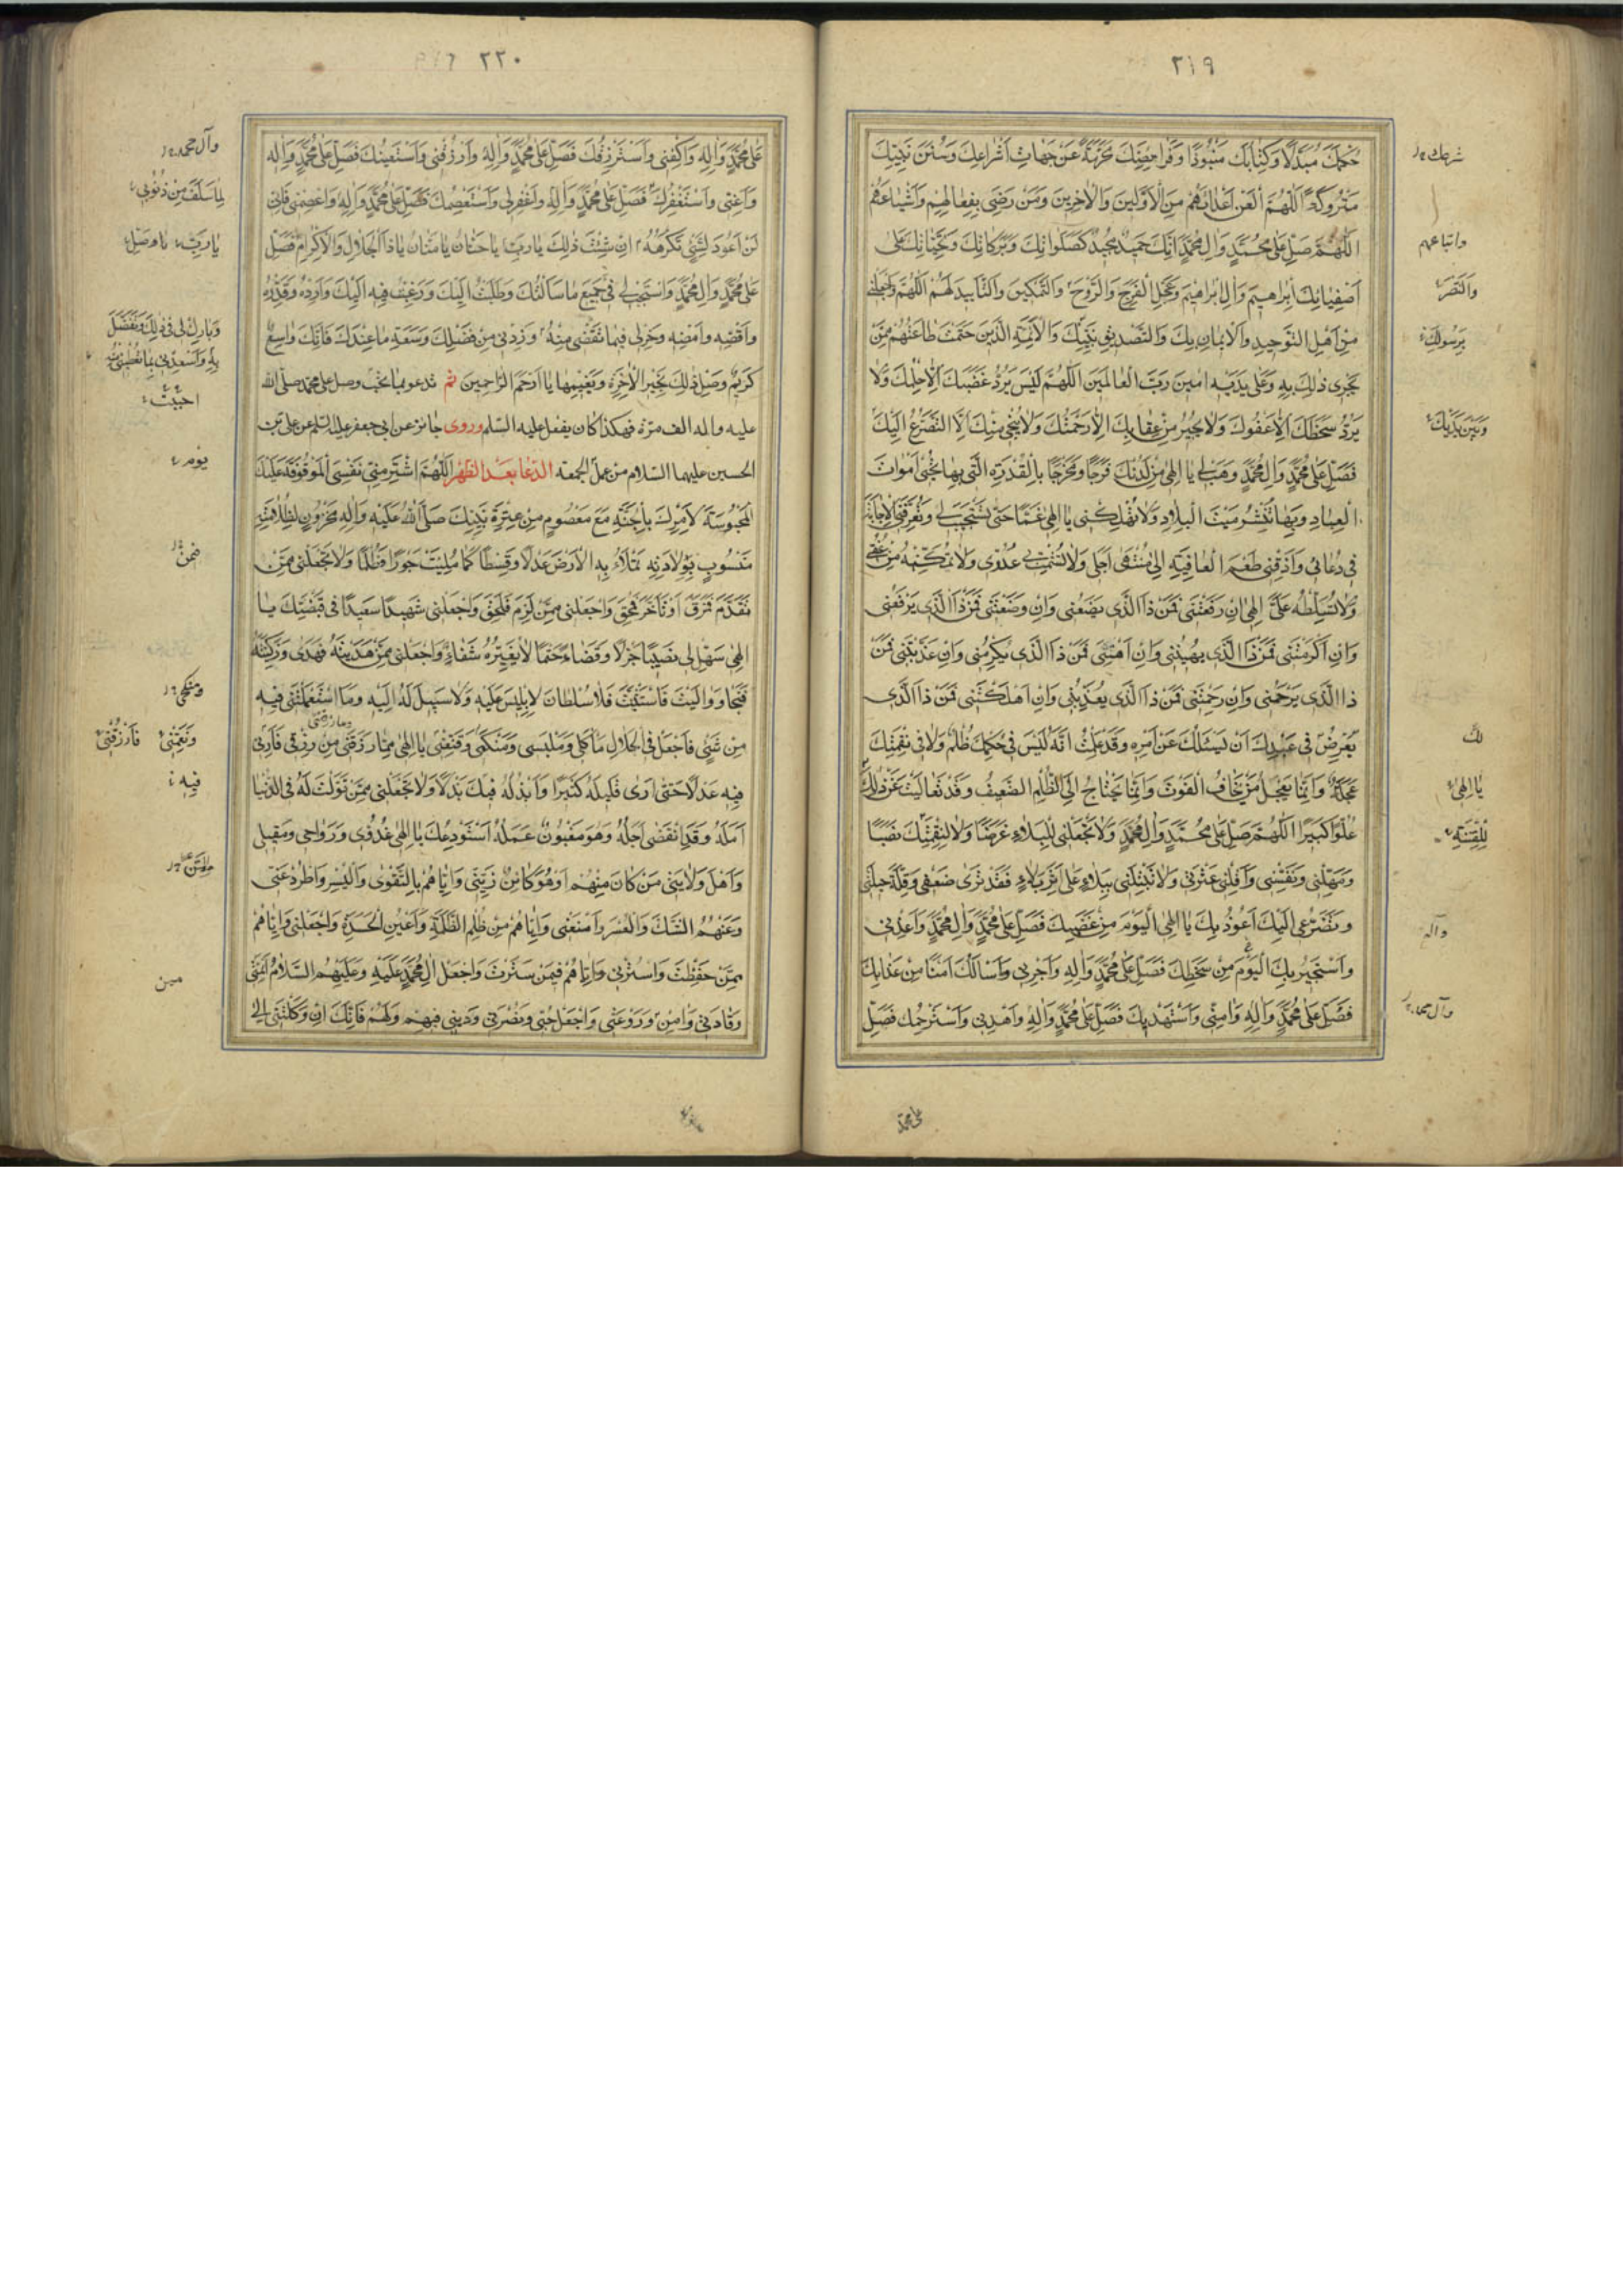 ٢١٩
حُكْمَكَ مُبَدَّلًا وَكِتَابَكَ مَنْبُوذًا وَفَرَائِضَكَ مُحَرَّفَةً عَنْ جِهَاتِ أَشْرَاعِكَ وَسُنَنَ نَبِيِّكَ
مَتْرُوكَةً اَللّٰهُمَّ الْعَنْ أَعْدَاءَهُمْ مِنَ الْأَوَّلِينَ وَالْآخِرِينَ وَمَنْ رَضِيَ بِفِعَالِهِمْ وَأَشْيَاعَهُمْ
اَللّٰهُمَّ صَلِّ عَلَى مُحَمَّدٍ وَآلِ مُحَمَّدٍ إِنَّكَ حَمِيدٌ مَجِيدٌ كَصَلَوَاتِكَ وَبَرَكَاتِكَ وَتَحِيَّاتِكَ عَلَى
أَصْفِيَائِكَ إِبْرَاهِيمَ وَآلِ إِبْرَاهِيمَ وَعَجِّلِ الْفَرَجَ وَالرَّوْحَ وَالتَّمْكِينَ وَالتَّأْيِيدَ لَهُمْ اَللّٰهُمَّ وَاجْعَلْنِي
مِنْ أَهْلِ التَّوْحِيدِ وَالْإِيمَانِ بِكَ وَالتَّصْدِيقِ بِنَبِيِّكَ وَالْأَئِمَّةِ الَّذِينَ حَتَمْتَ طَاعَتَهُمْ مِمَّنْ
يَجْرِي ذٰلِكَ بِهِ وَعَلَى يَدَيْهِ اٰمِينَ رَبَّ الْعَالَمِينَ اَللّٰهُمَّ لَيْسَ يَرُدُّ غَضَبَكَ إِلَّا حِلْمُكَ وَلَا
يَرُدُّ سَخَطَكَ إِلَّا عَفْوُكَ وَلَا يُجِيرُ مِنْ عِقَابِكَ إِلَّا رَحْمَتُكَ وَلَا يُنْجِي مِنْكَ إِلَّا التَّضَرُّعُ إِلَيْكَ
فَصَلِّ عَلَى مُحَمَّدٍ وَآلِ مُحَمَّدٍ وَهَبْ لِي يَا إِلٰهِي مِنْ لَدُنْكَ فَرَجًا وَمَخْرَجًا بِالْقُدْرَةِ الَّتِي بِهَا تُحْيِي أَمْوَاتَ
الْعِبَادِ وَبِهَا تَنْشُرُ مَيْتَ الْبِلَادِ وَلَا تُهْلِكْنِي يَا إِلٰهِي غَمًّا حَتَّى تَسْتَجِيبَ لِي وَتُعَرِّفَنِي الْإِجَابَةَ
فِي دُعَائِي وَأَذِقْنِي طَعْمَ الْعَافِيَةِ إِلَى مُنْتَهَى أَجَلِي وَلَا تُشْمِتْ بِي عَدُوِّي وَلَا تُمَكِّنْهُ مِنْ عُنُقِي
وَلَا تُسَلِّطْهُ عَلَيَّ إِلٰهِي إِنْ رَفَعْتَنِي فَمَنْ ذَا الَّذِي يَضَعُنِي وَإِنْ وَضَعْتَنِي فَمَنْ ذَا الَّذِي يَرْفَعُنِي
وَإِنْ أَكْرَمْتَنِي فَمَنْ ذَا الَّذِي يُهِينُنِي وَإِنْ أَهَنْتَنِي فَمَنْ ذَا الَّذِي يُكْرِمُنِي وَإِنْ عَذَّبْتَنِي فَمَنْ
ذَا الَّذِي يَرْحَمُنِي وَإِنْ رَحِمْتَنِي فَمَنْ ذَا الَّذِي يُعَذِّبُنِي وَإِنْ أَهْلَكْتَنِي فَمَنْ ذَا الَّذِي
يَعْرِضُ فِي عَبْدِكَ أَنْ يَسْئَلَكَ عَنْ أَمْرِهِ وَقَدْ عَلِمْتُ أَنَّهُ لَيْسَ فِي حُكْمِكَ ظُلْمٌ وَلَا فِي نَقِمَتِكَ
عَجَلَةٌ وَإِنَّمَا يَعْجَلُ مَنْ يَخَافُ الْفَوْتَ وَإِنَّمَا يَحْتَاجُ إِلَى الظُّلْمِ الضَّعِيفُ وَقَدْ تَعَالَيْتَ عَنْ ذٰلِكَ
عُلُوًّا كَبِيرًا اَللّٰهُمَّ صَلِّ عَلَى مُحَمَّدٍ وَآلِ مُحَمَّدٍ وَلَا تَجْعَلْنِي لِلْبَلَاءِ غَرَضًا وَلَا لِنَقِمَتِكَ نَصَبًا
وَمَهِّلْنِي وَنَفِّسْنِي وَأَقِلْنِي عَثْرَتِي وَلَا تَبْتَلِنِي بِبَلَاءٍ عَلَى أَثَرِ بَلَاءٍ فَقَدْ تَرَى ضَعْفِي وَقِلَّةَ حِيلَتِي
وَتَضَرُّعِي إِلَيْكَ أَعُوذُ بِكَ يَا إِلٰهِي الْيَوْمَ مِنْ غَضَبِكَ فَصَلِّ عَلَى مُحَمَّدٍ وَآلِ مُحَمَّدٍ وَأَعِذْنِي
وَأَسْتَجِيرُ بِكَ الْيَوْمَ مِنْ سَخَطِكَ فَصَلِّ عَلَى مُحَمَّدٍ وَآلِهِ وَأَجِرْنِي وَأَسْأَلُكَ أَمْنًا مِنْ عَذَابِكَ
فَصَلِّ عَلَى مُحَمَّدٍ وَآلِهِ وَاٰمِنِّي وَأَسْتَهْدِيكَ فَصَلِّ عَلَى مُحَمَّدٍ وَآلِهِ وَاهْدِنِي وَأَسْتَرْحِمُكَ فَصَلِّ
واتباعهم
وَالنَّصْرَ
بِرَسُولِكَ
وَبَيْنَ يَدَيْكَ
لَكَ
يَا إِلٰهِي
لِلْفِتْنَةِ
وآله
وآل محمد
على محمد
٢٢٠
عَلَى مُحَمَّدٍ وَآلِهِ وَاكْفِنِي وَأَسْتَرْزِقُكَ فَصَلِّ عَلَى مُحَمَّدٍ وَآلِهِ وَارْزُقْنِي وَأَسْتَعِينُكَ فَصَلِّ عَلَى مُحَمَّدٍ وَآلِهِ
وَأَعِنِّي وَأَسْتَغْفِرُكَ فَصَلِّ عَلَى مُحَمَّدٍ وَآلِهِ وَاغْفِرْ لِي وَأَسْتَعْصِمُكَ فَصَلِّ عَلَى مُحَمَّدٍ وَآلِهِ وَاعْصِمْنِي فَإِنِّي
لَنْ أَعُودَ لِشَيْءٍ تَكْرَهُهُ إِنْ شِئْتَ ذٰلِكَ يَا رَبِّ يَا حَنَّانُ يَا مَنَّانُ يَا ذَا الْجَلَالِ وَالْإِكْرَامِ فَصَلِّ
عَلَى مُحَمَّدٍ وَآلِ مُحَمَّدٍ وَاسْتَجِبْ لِي فِي جَمِيعِ مَا سَأَلْتُكَ وَطَلَبْتُ إِلَيْكَ وَرَغِبْتُ فِيهِ إِلَيْكَ وَأَرِدْهُ وَقَدِّرْهُ
وَاقْضِهِ وَأَمْضِهِ وَخِرْ لِي فِيمَا تَقْضِي مِنْهُ وَزِدْنِي مِنْ فَضْلِكَ وَسَعَةِ مَا عِنْدَكَ فَإِنَّكَ وَاسِعٌ
كَرِيمٌ وَصِلْ ذٰلِكَ بِخَيْرِ الْآخِرَةِ وَنَعِيمِهَا يَا أَرْحَمَ الرَّاحِمِينَ ثم تدعو بما تحب وصل على محمد صلى الله
عليه واله الف مرة فهكذا كان يفعل عليه السلم وروى جابر عن ابي جعفر عليه السلم عن على بن
الحسين عليهما السلام من عمل الجمعة الدعا بعد الظهر اَللّٰهُمَّ اشْتَرِ مِنِّي نَفْسِيَ الْمَوْقُوفَةَ عَلَيْكَ
الْمَحْبُوسَةَ لِأَمْرِكَ بِالْجَنَّةِ مَعَ مَعْصُومٍ مِنْ عِتْرَةِ نَبِيِّكَ صَلَّى اللّٰهُ عَلَيْهِ وَآلِهِ مَخْزُونٍ لِظُلَامَتِهِ
مَنْسُوبٍ بِوِلَادَتِهِ تَمْلَأُ بِهِ الْأَرْضَ عَدْلًا وَقِسْطًا كَمَا مُلِئَتْ جَوْرًا وَظُلْمًا وَلَا تَجْعَلْنِي مِمَّنْ
تَقَدَّمَ فَمَرَقَ أَوْ تَأَخَّرَ فَمُحِقَ وَاجْعَلْنِي مِمَّنْ لَزِمَ فَلَحِقَ وَاجْعَلْنِي شَهِيدًا سَعِيدًا فِي قَبْضَتِكَ يَا
إِلٰهِي سَهِّلْ لِي نَصِيبًا جَزْلًا وَقَضَاءً حَتْمًا لَا يُغَيِّرُهُ شَقَاءٌ وَاجْعَلْنِي مِمَّنْ هَدَيْتَهُ فَهَدَى وَزَكَّيْتَهُ
فَنَجَا وَوَالَيْتَ فَاسْتَثْنَيْتَ فَلَا سُلْطَانَ لِإِبْلِيسَ عَلَيْهِ وَلَا سَبِيلَ لَهُ إِلَيْهِ وَمَا اسْتَعْمَلْتَنِي فِيهِ
مِنْ شَيْءٍ فَاجْعَلْ فِي الْحَلَالِ مَأْكَلِي وَمَلْبَسِي وَمَنْكَحِي وَقَنِّعْنِي يَا إِلٰهِي بِمَا رَزَقْتَنِي مِنْ رِزْقٍ فَأَرِنِي
فِيهِ عَدْلًا حَتَّى أَرَى قَلِيلَهُ كَثِيرًا وَأَبْذُلَهُ فِيكَ بَذْلًا وَلَا تَجْعَلْنِي مِمَّنْ طَوَّلْتَ لَهُ فِي الدُّنْيَا
أَمَلَهُ وَقَدِ انْقَضَى أَجَلُهُ وَهُوَ مَغْبُونٌ عَمَلُهُ أَسْتَوْدِعُكَ يَا إِلٰهِي غُدُوِّي وَرَوَاحِي وَمَقِيلِي
وَأَهْلَ وَلَايَتِي مَنْ كَانَ مِنْهُمْ أَوْ هُوَ كَائِنٌ زَيِّنِّي وَإِيَّاهُمْ بِالتَّقْوَى وَالْيُسْرِ وَاطْرُدْ عَنِّي
وَعَنْهُمُ الشَّكَّ وَالْعُسْرَ وَامْنَعْنِي وَإِيَّاهُمْ مِنْ ظُلْمِ الظَّلَمَةِ وَأَعْيُنِ الْحَسَدَةِ وَاجْعَلْنِي وَإِيَّاهُمْ
مِمَّنْ حَفِظْتَ وَاسْتُرْنِي وَإِيَّاهُمْ فِيمَنْ سَتَرْتَ وَاجْعَلْ آلَ مُحَمَّدٍ عَلَيْهِ وَعَلَيْهِمُ السَّلَامُ أَئِمَّتِي
وَقَادَتِي وَاٰمِنْ رَوْعَتِي وَاجْعَلْ حُبِّي وَنُصْرَتِي وَدِينِي فِيهِمْ وَلَهُمْ فَإِنَّكَ إِنْ وَكَلْتَنِي إِلَى
وآل محمد
لِمَا سَلَفَ مِنْ ذُنُوبِي
وَبَارِكْ لِي فِي ذٰلِكَ وَتَفَضَّلْ
احببت
يوم
فمن
وَنِعْمَتِي فَارْزُقْنِي
فِيهِ